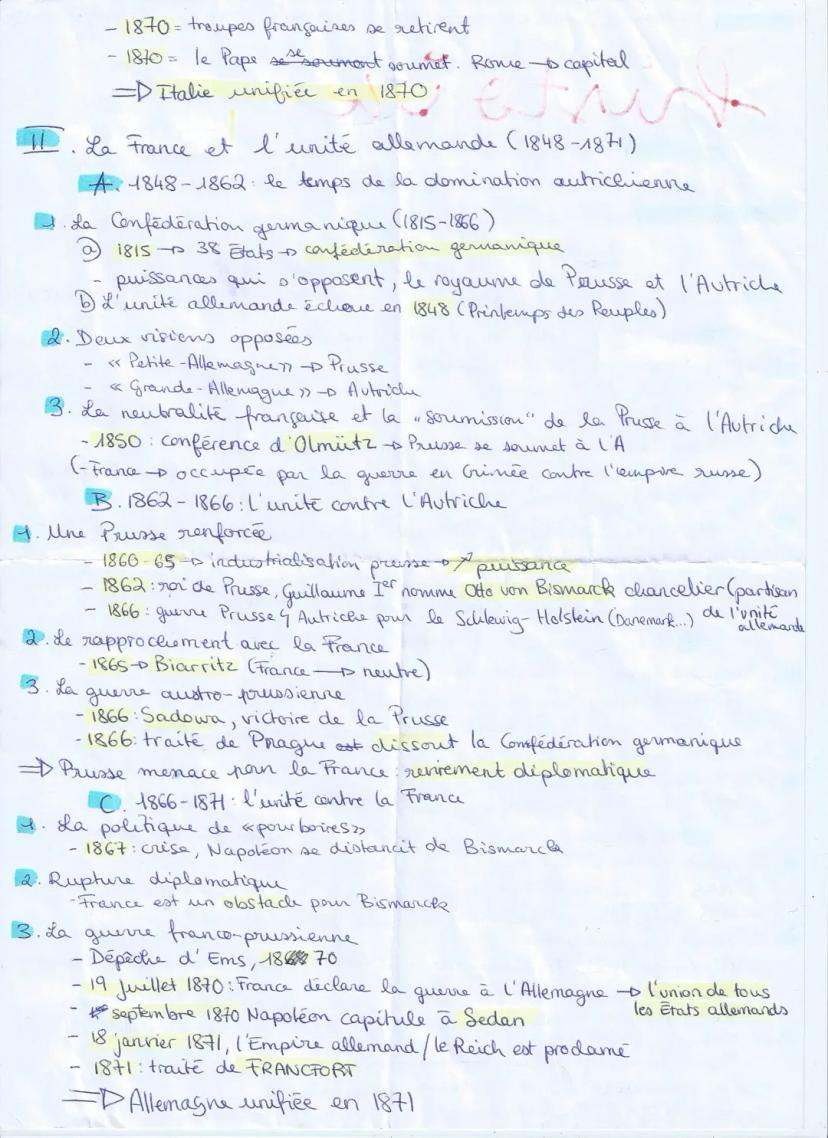 - 1870 = troupes françaises se retirent
- 1870 = le Pape se soumont se soumet. Rome → capital
⇒ Italie unifiée en 1870
II. La France et l'unité allemande (1848-1871)
A. 1848-1862 : le temps de la domination autrichienne
1. La Confédération germanique (1815-1866)
a) 1815 → 38 États → confédération germanique
- puissances qui s'opposent, le royaume de Prusse et l'Autriche
b) L'unité allemande échoue en 1848 (Printemps des Peuples)
2. Deux visions opposées
- « Petite-Allemagne » → Prusse
- « Grande-Allemagne » → Autriche
3. La neutralité française et la "soumission" de la Prusse à l'Autriche
- 1850 : conférence d'Olmütz → Prusse se soumet à l'A
(- France → occupée par la guerre en Crimée contre l'empire russe)
B. 1862-1866 : l'unité contre l'Autriche
1. Une Prusse renforcée
- 1860-65 → industrialisation prusse → ↗ puissance
- 1862 : roi de Prusse, Guillaume Ier nomme Otto von Bismarck chancelier (partisan
de l'unité allemande
- 1866 : guerre Prusse ↯ Autriche pour le Schlewig-Holstein (Danemark...)
2. Le rapprochement avec la France
- 1865 → Biarritz (France → neutre)
3. La guerre austro-prussienne
- 1866 : Sadowa, victoire de la Prusse
- 1866 : traité de Prague est dissout la Confédération germanique
⇒ Prusse menace pour la France : revirement diplomatique
C. 1866-1871 : l'unité contre la France
1. La politique de «pourboires»
- 1867 : crise, Napoléon se distancit de Bismarck
2. Rupture diplomatique
- France est un obstacle pour Bismarck
3. La guerre franco-prussienne
- Dépêche d'Ems, 1870
- 19 juillet 1870 : France déclare la guerre à l'Allemagne → l'union de tous
les États allemands
- septembre 1870 Napoléon capitule à Sedan
- 18 janvier 1871, l'Empire allemand / le Reich est proclamé
- 1871 : traité de FRANCFORT
⇒ Allemagne unifiée en 1871